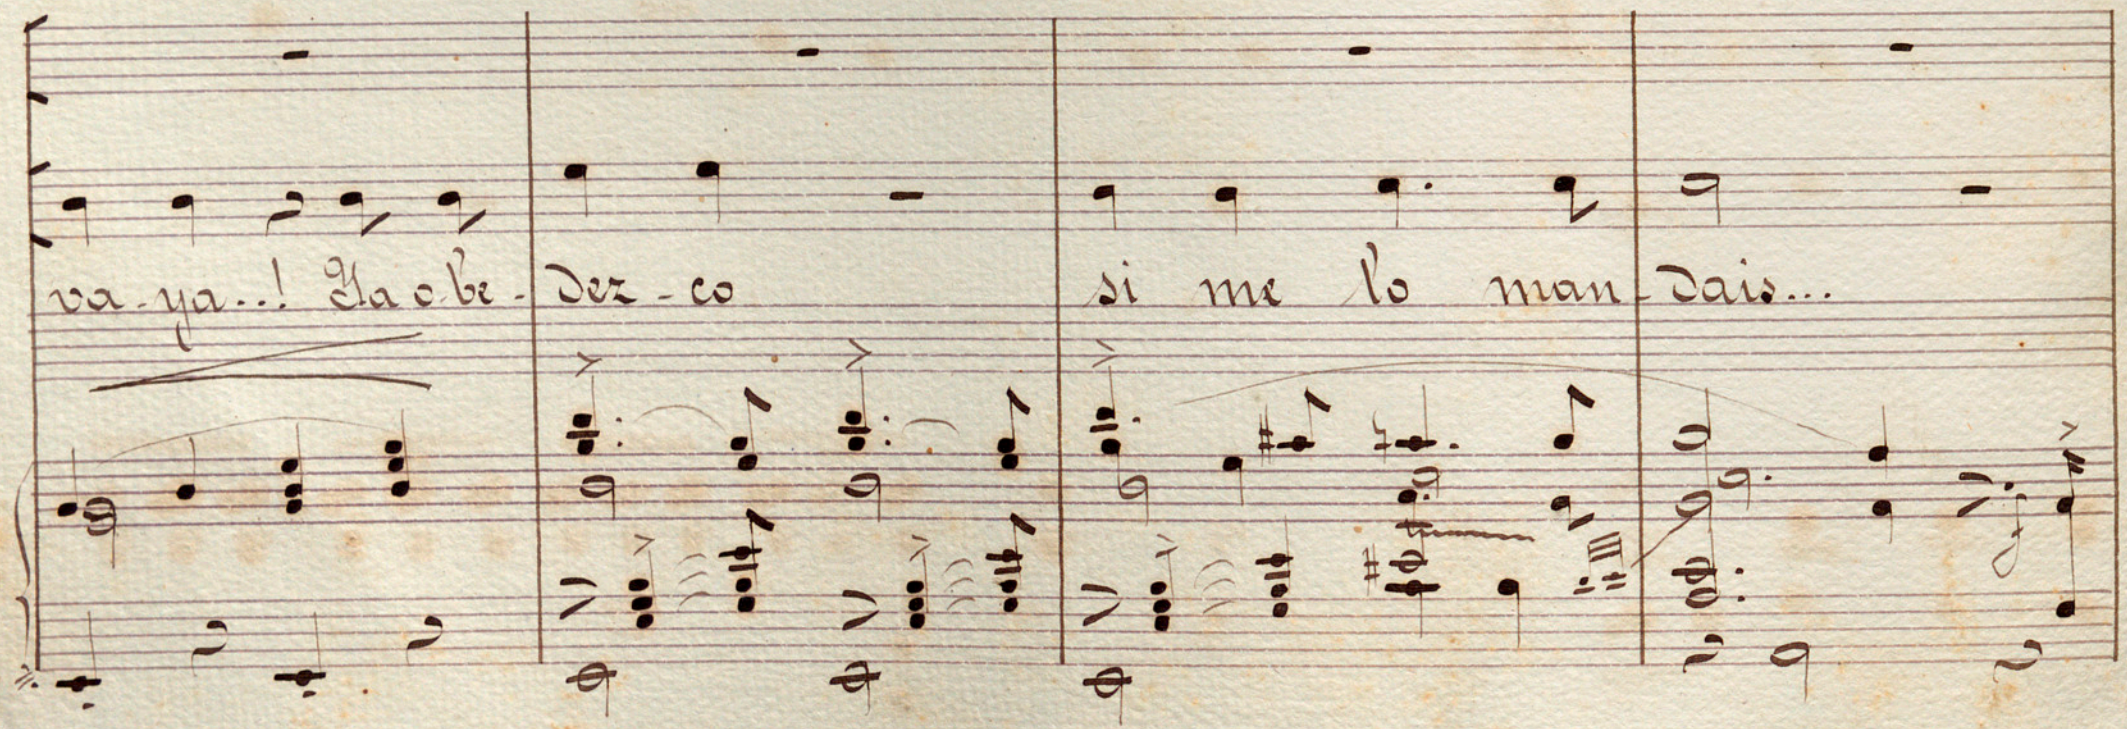 va-ya..! Ya o-be-dez-co si me lo man-dais...